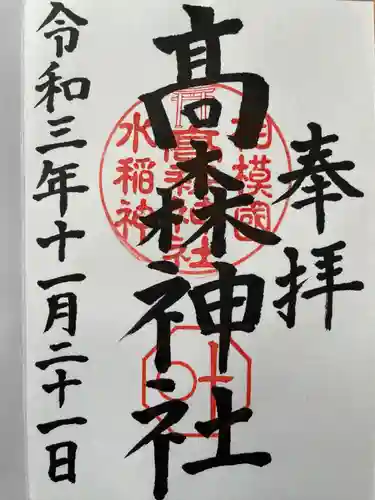 奉拝
高森神社
相模國
高森神社
水稲神
令和三年十一月二十一日